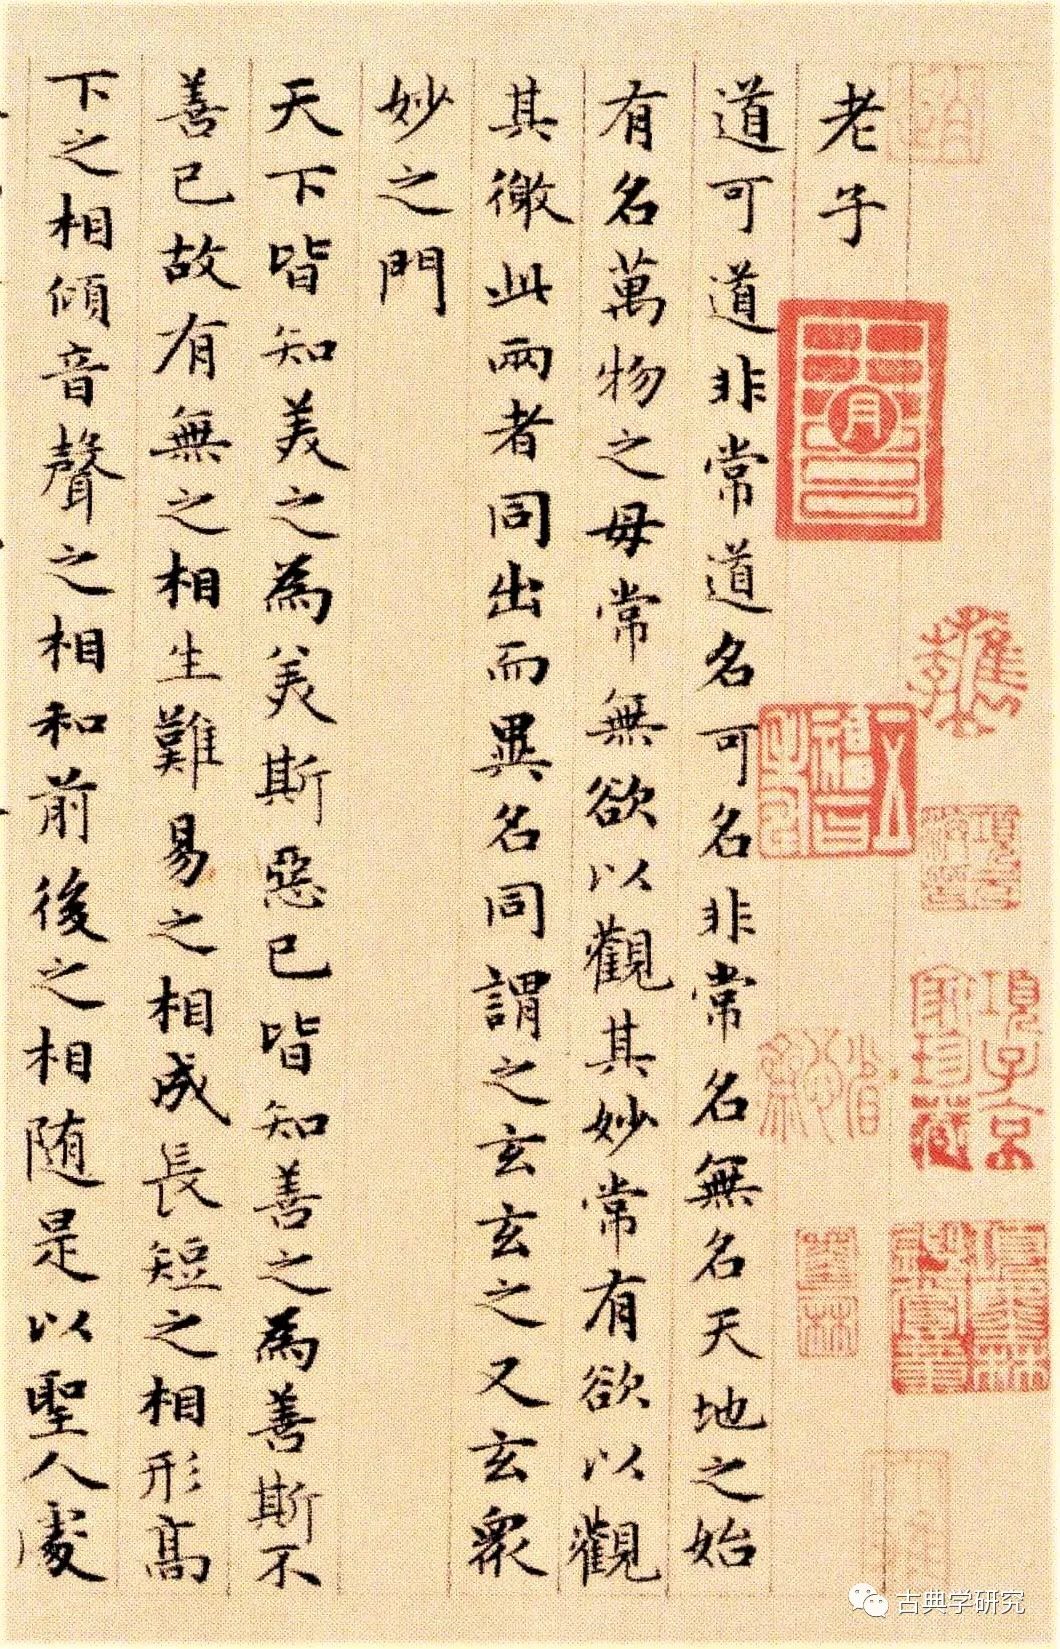 項子京
家珍藏
老子
道可道非常道名可名非常名無名天地之始
有名萬物之母常無欲以觀其妙常有欲以觀
其徼此兩者同出而異名同謂之玄玄之又玄衆
妙之門
天下皆知美之為美斯惡已皆知善之為善斯不
善已故有無之相生難易之相成長短之相形高
下之相傾音聲之相和前後之相随是以聖人處
古典学研究